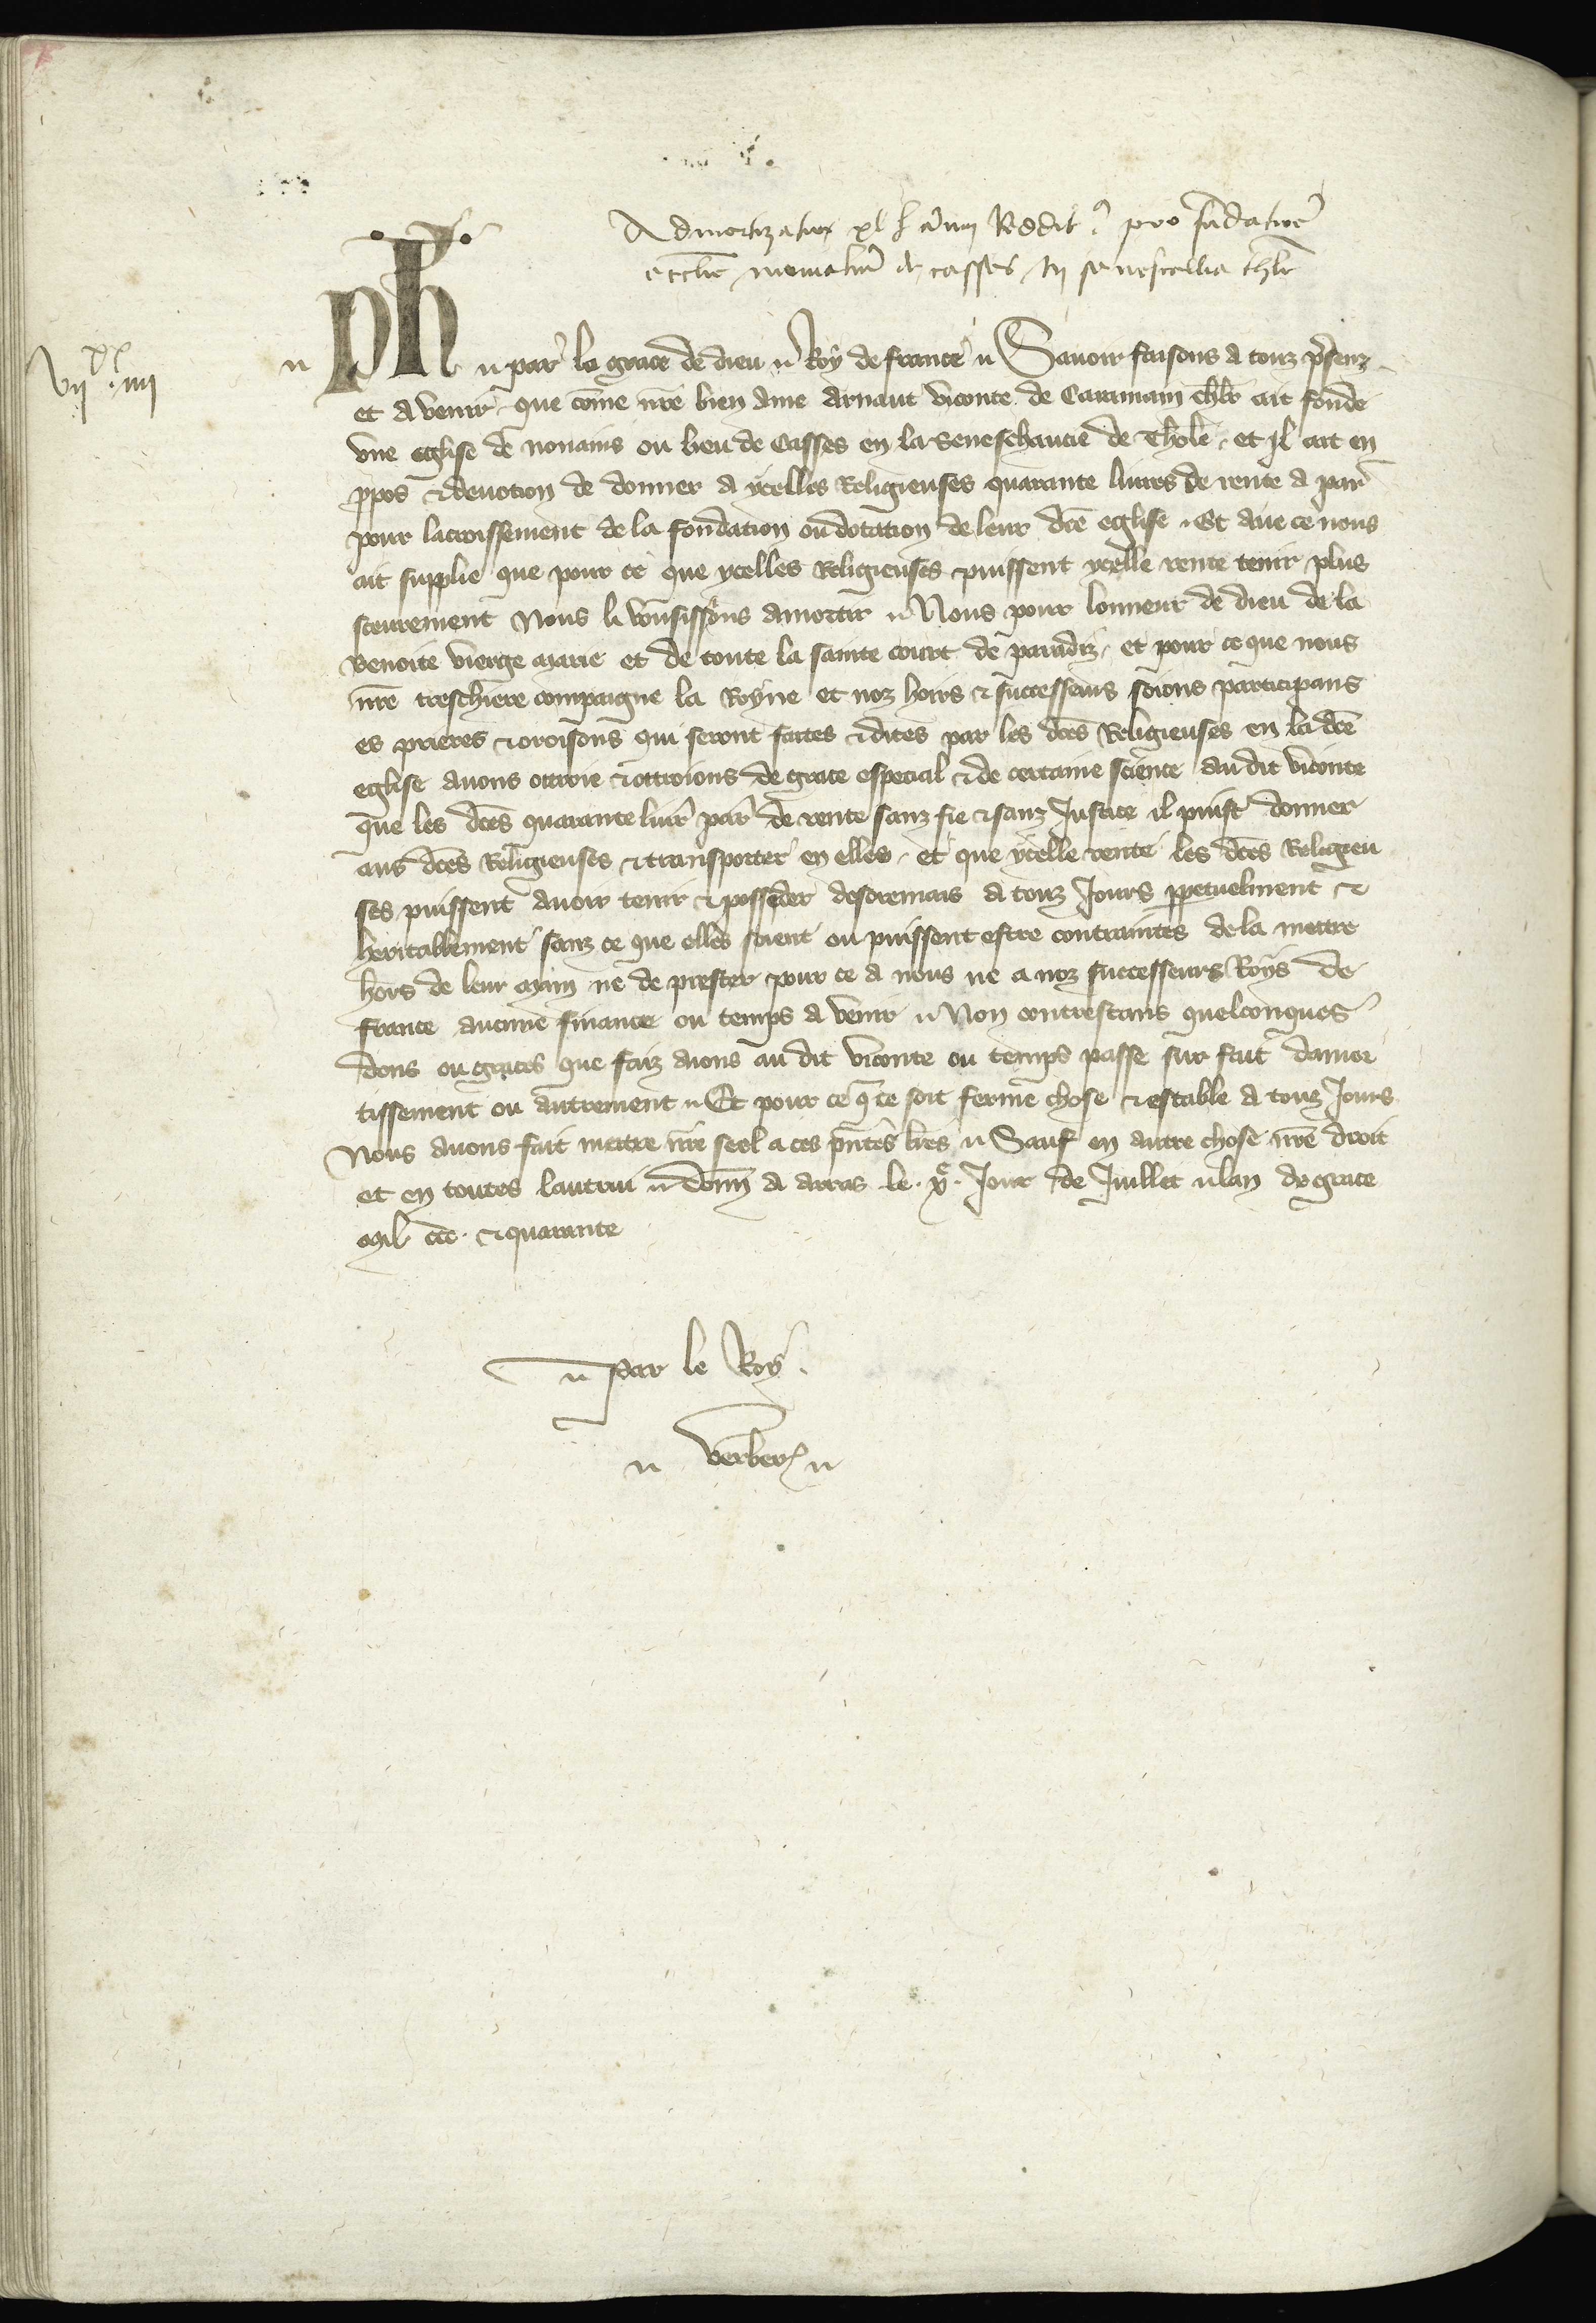 Admortizatio xl l annui Reddit pro fundatione
ecclie monialiu de casses in senescallia thle
vii xx iiii
Ph par la grace de dieu Roy de france Savoir faisons a touz psenz
et avenir que come nre bien ame Arnaut viconte de Caramain chlr ait fonde
une eglise de nonains ou lieu de Casses en la Seneschaucie de Thole et Il ait en
ppos et devotion de donner a ycelles Religieuses quarante livres de rente a par
pour lacroissement de la fondation ou dotation de leur dce eglise Et ave ce nous
ait supplie que pour ce que ycelles Religieuses puissent ycelle rente tenir plus
sceurement Nous li vousissions amortir Nous pour lonneur de dieu de la
benoite vierge marie et de toute la sainte court de paradiz et pour ce que nous
nre treschiere compaigne la Royne et noz hoirs et successeurs soions participans
es prieres et oroisons qui seront faites et dites par les dces Religieuses en la dce
eglise avons ottroie et ottroions de grace especial et de certaine science au dit viconte
que les dces quarante livr par de rente sanz fie et sanz Justice il puist donner
aus dces Religieuses et transporter en elles et que ycelle rente les dces Religieu
ses puissent avoir tenir et posseder desoremais a touz Jours ppetuelment et
heritablement sanz ce que elles soient ou puissent estre contraintes de la mettre
hors de leur main ne de prester pour ce a nous ne a noz successeurs Roys de
France aucune finance ou temps a venir Non contrestans quelconques
dons ou graces que faiz aions au dit viconte ou temps passe sur fait damor
tissement ou autrement Et pour ce q ce soit ferme chose et estable a touz Jours
Nous avons fait mettre nre seel a ces pntes lres Sauf en autre chose nre droit
et en toutes lautrui Donn a arras le xe Jour de Juillet lan de grace
mil ccc et quarante
par le Roy
Verber